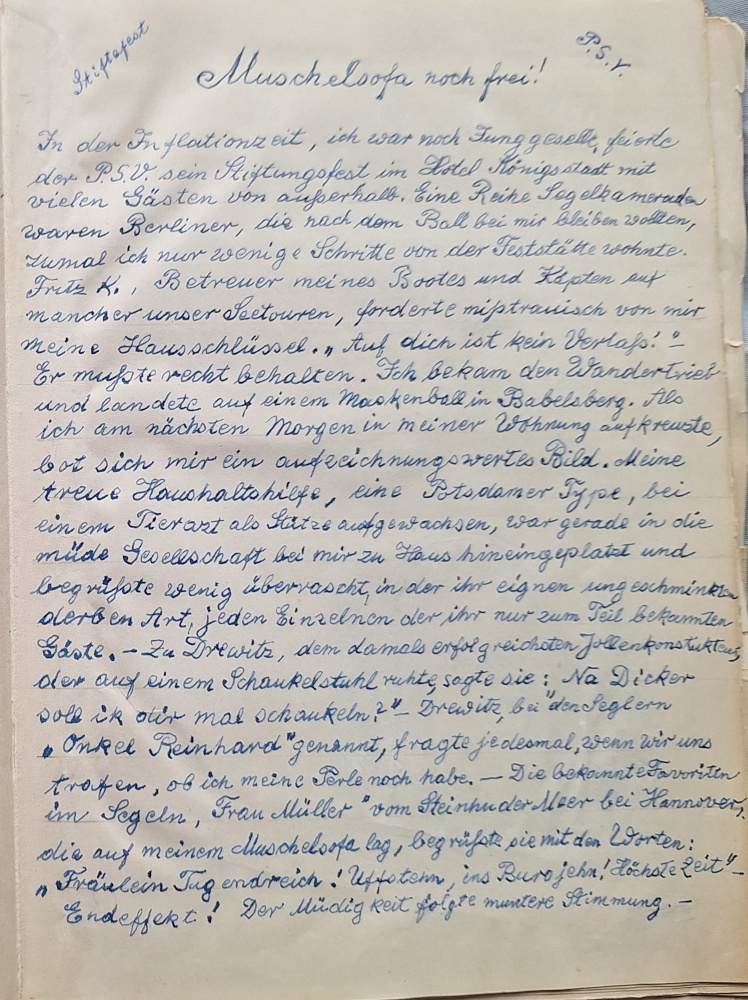 Stiftsfest
P.S.V.
Muschelsofa noch frei!
In der Inflationzeit, ich war noch Junggeselle, feierte
der P.S.V. sein Stiftungsfest im Hotel Königsstadt mit
vielen Gästen von außerhalb. Eine Reihe Segelkameraden
waren Berliner, die nach dem Ball bei mir bleiben wollten,
zumal ich nur wenige Schritte von der Feststätte wohnte.
Fritz K., Betreuer meines Bootes und Käpten auf
mancher unser Seetouren, forderte mißtrauisch von mir
meine Hausschlüssel. „Auf dich ist kein Verlaß!" –
Er mußte recht behalten. Ich bekam den Wandertrieb
und landete auf einem Maskenball in Babelsberg. Als
ich am nächsten Morgen in meiner Wohnung aufkreuzte,
bot sich mir ein aufzeichnungswertes Bild. Meine
treue Haushaltshilfe, eine Potsdamer Type, bei
einem Tierazt als Stütze aufgewachsen, war gerade in die
müde Gesellschaft bei mir zu Haus hineingeplatzt und
begrüßte wenig überrascht, in der ihr eignen ungeschminkten
derben Art, jeden Einzelnen der ihr nur zum Teil bekannten
Gäste. – Zu Drewitz, dem damals erfolgreichsten Jollenkonstukteur,
der auf einem Schaukelstuhl ruhte, sagte sie: „Na Dicker
soll ik dir mal schaukeln?" – Drewitz, bei den Seglern
„Onkel Reinhard" genannt, fragte jedesmal, wenn wir uns
trafen, ob ich meine Perle noch habe. – Die bekannte Favoritin
im Segeln, Frau Müller" vom Steinhuder Meer bei Hannover,
die auf meinem Muschelsofa lag, begrüßte sie mit den Worten:
„Fräulein Tugendreich! Uffstehn, ins Buro jehn! Höchste Zeit" –
Endeffekt! Der Müdigkeit folgte muntere Stimmung. –